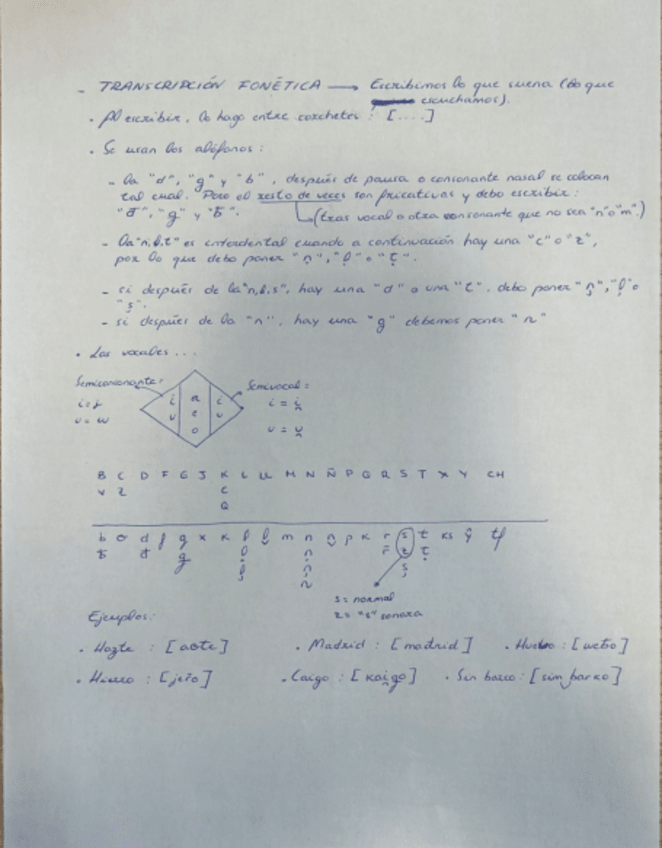 - TRANSCRIPCIÓN FONÉTICA → Escribimos lo que suena (lo que
escuchamos).
• Al escribir, lo hago entre corchetes: [....]
• Se usan los alófonos:
- la "d", "g" y "b", después de pausa o consonante nasal se colocan
tal cual. Pero el resto de veces son fricativas y debo escribir:
"đ", "g" y "ƀ". (tras vocal o otra consonante que no sea "n" o "m".)
- la "n, l, t" es interdental cuando a continuación hay una "c" o "z",
por lo que debo poner "n̟", "l̟" o "t̟".
- si después de la "n, l, s", hay una "d" o una "t", debo poner "n̪", "l̪" o
"s̪".
- si después de la "n", hay una "g" debemos poner "n"
• Las vocales ...
Semiconsonante: Semivocal:
i = j i a i i = i̯
u = w u e u u = u̯
o
B C D F G J K L LL M N Ñ P Q R S T X Y CH
V Z C
Q
b θ d f g x k l m n p k r s t ks
ƀ đ g r̄ z
s = normal
z = "s" sonora
Ejemplos:
• Hazte : [aθte] • Madrid : [madrid] • Hueso : [weso]
• Hierro : [jer̄o] • Caigo : [kai̯go] • Sin barco : [sim barko]